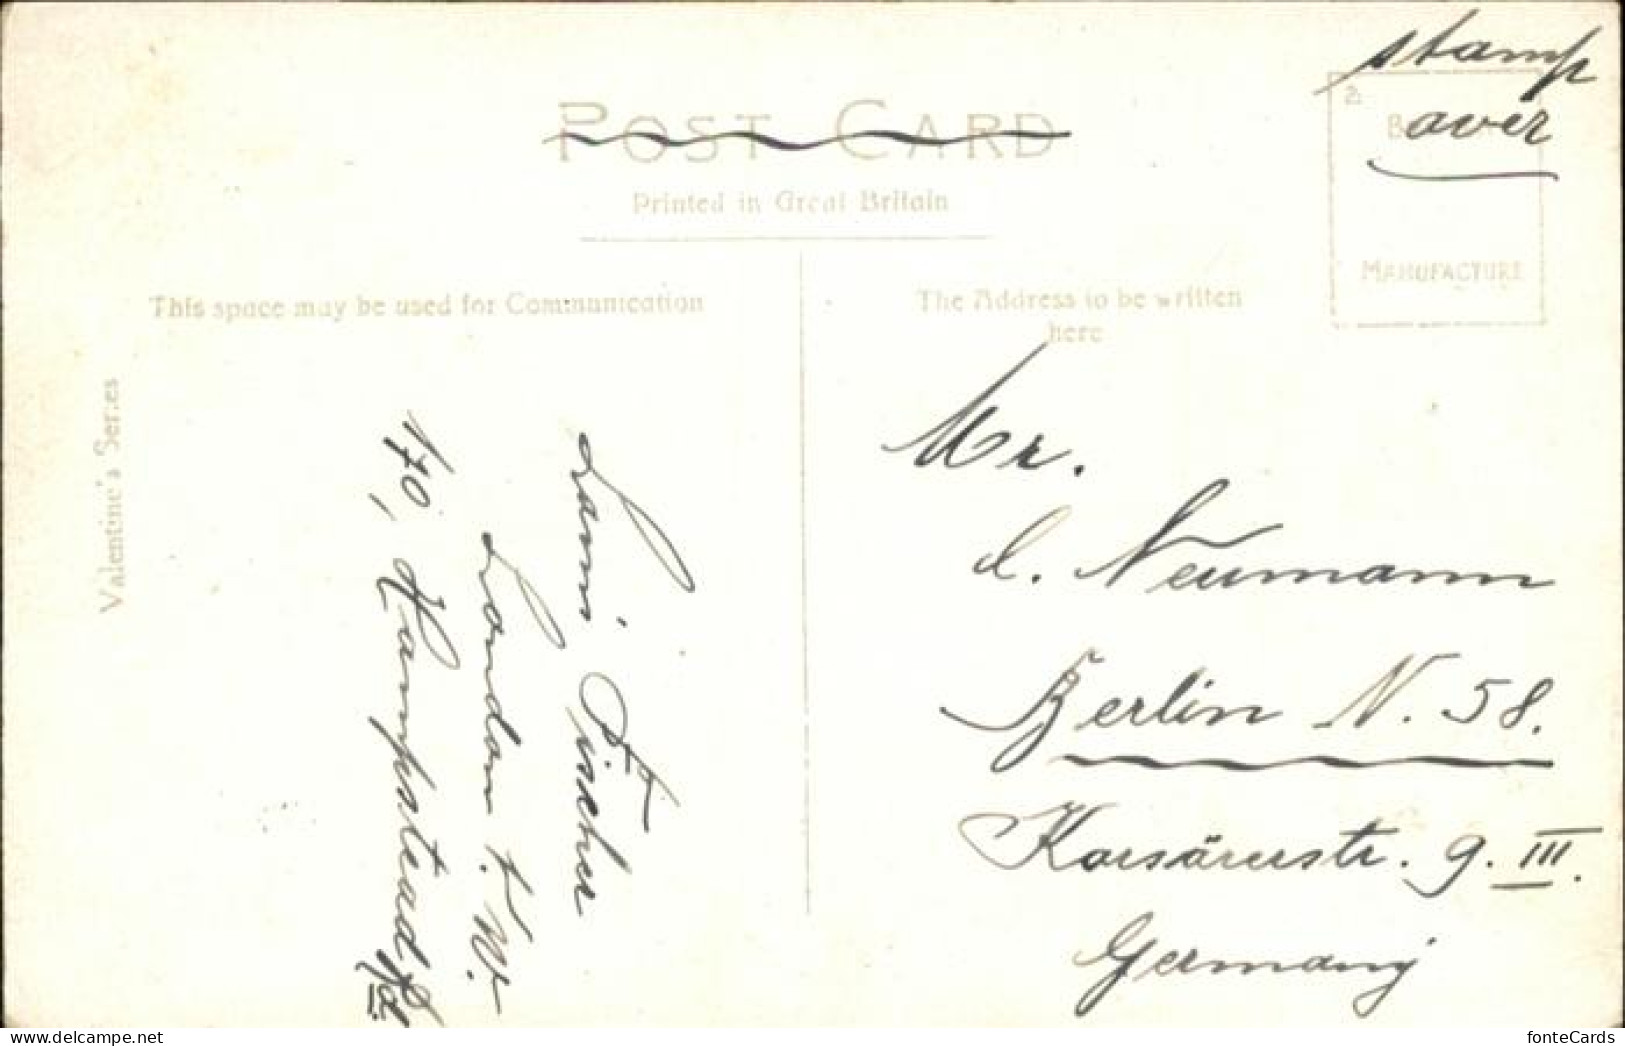 stamp
over
POST CARD
Printed in Great Britain
MANUFACTURE
This space may be used for Communication
The Address to be written
here
Valentine's Series
Mr.
C. Neumann
Berlin N. 58.
9. III.
Germany
Fischer
London N.W.
170, Hampstead Rd.
fonteCards